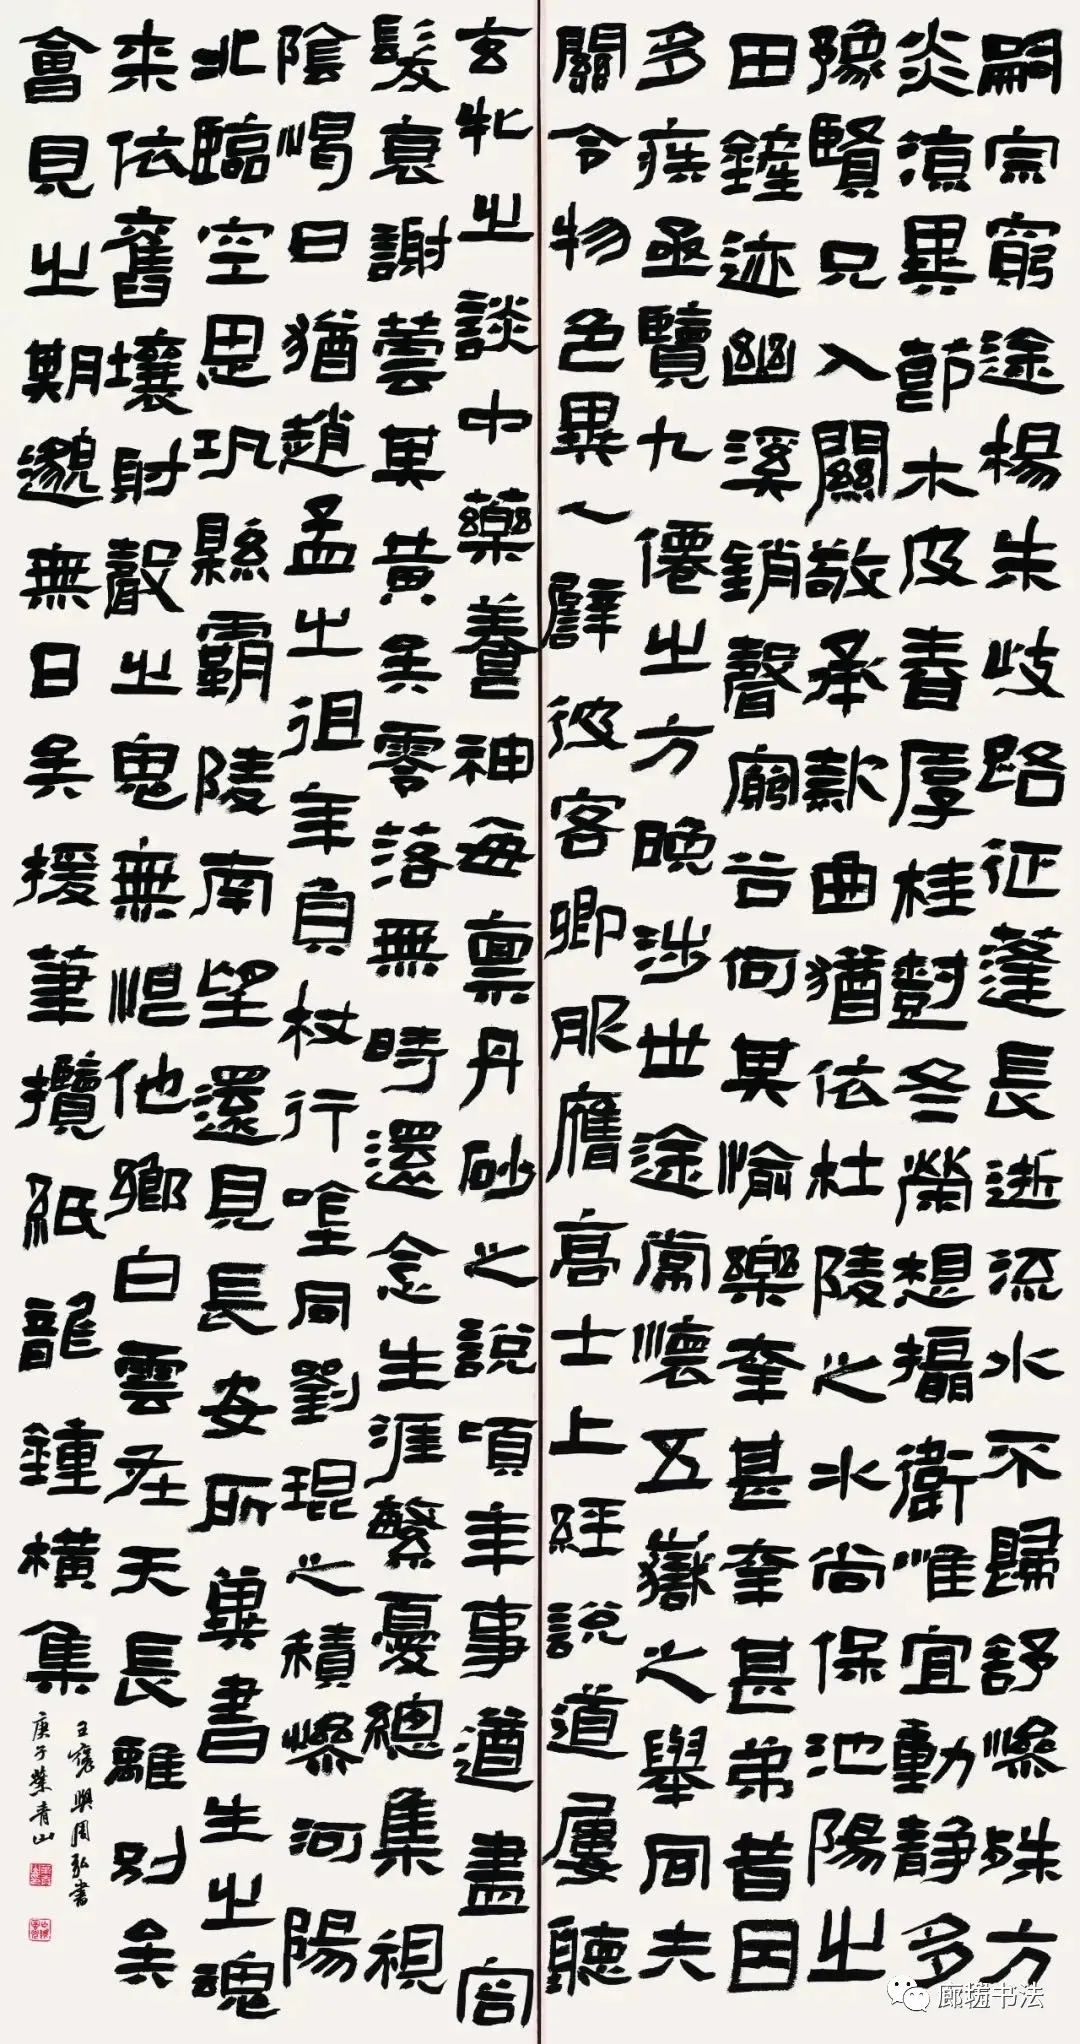 嗣宗窮途楊朱歧路征蓬長逝流水不歸舒慘殊方
炎涼異節木皮春厚桂樹冬榮想攝衛惟宜動靜多
豫賢兄入關敬承款曲猶依杜陵之水尚保池陽之
田鏟迹幽溪銷聲窮谷何其愉樂幸甚幸甚弟昔因
多疾亟覽九僊之方晚涉世途常懷五嶽之舉同夫
關令物色異人譬彼客卿服膺高士上經說道屢聽
玄牝之談中藥養神每禀丹砂之說頃年事遒盡容
髮衰謝蕓其黄矣零落無時還念生涯繁憂總集視
陰愒日猶趙孟之徂年負杖行吟同劉琨之積慘河陽
北臨空思巩縣霸陵南望還見長安所冀書生之魂
来依舊壤射聲之鬼無恨他鄉白雲在天長離別矣
會見之期邈無日矣援筆攬紙龍鍾橫集
王褒與周弘書
庚子 青山
廊墙书法